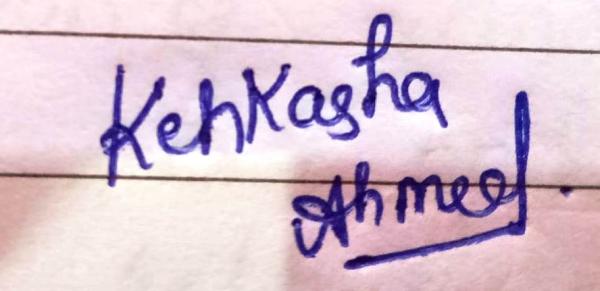 Kehkasha
Ahmed.